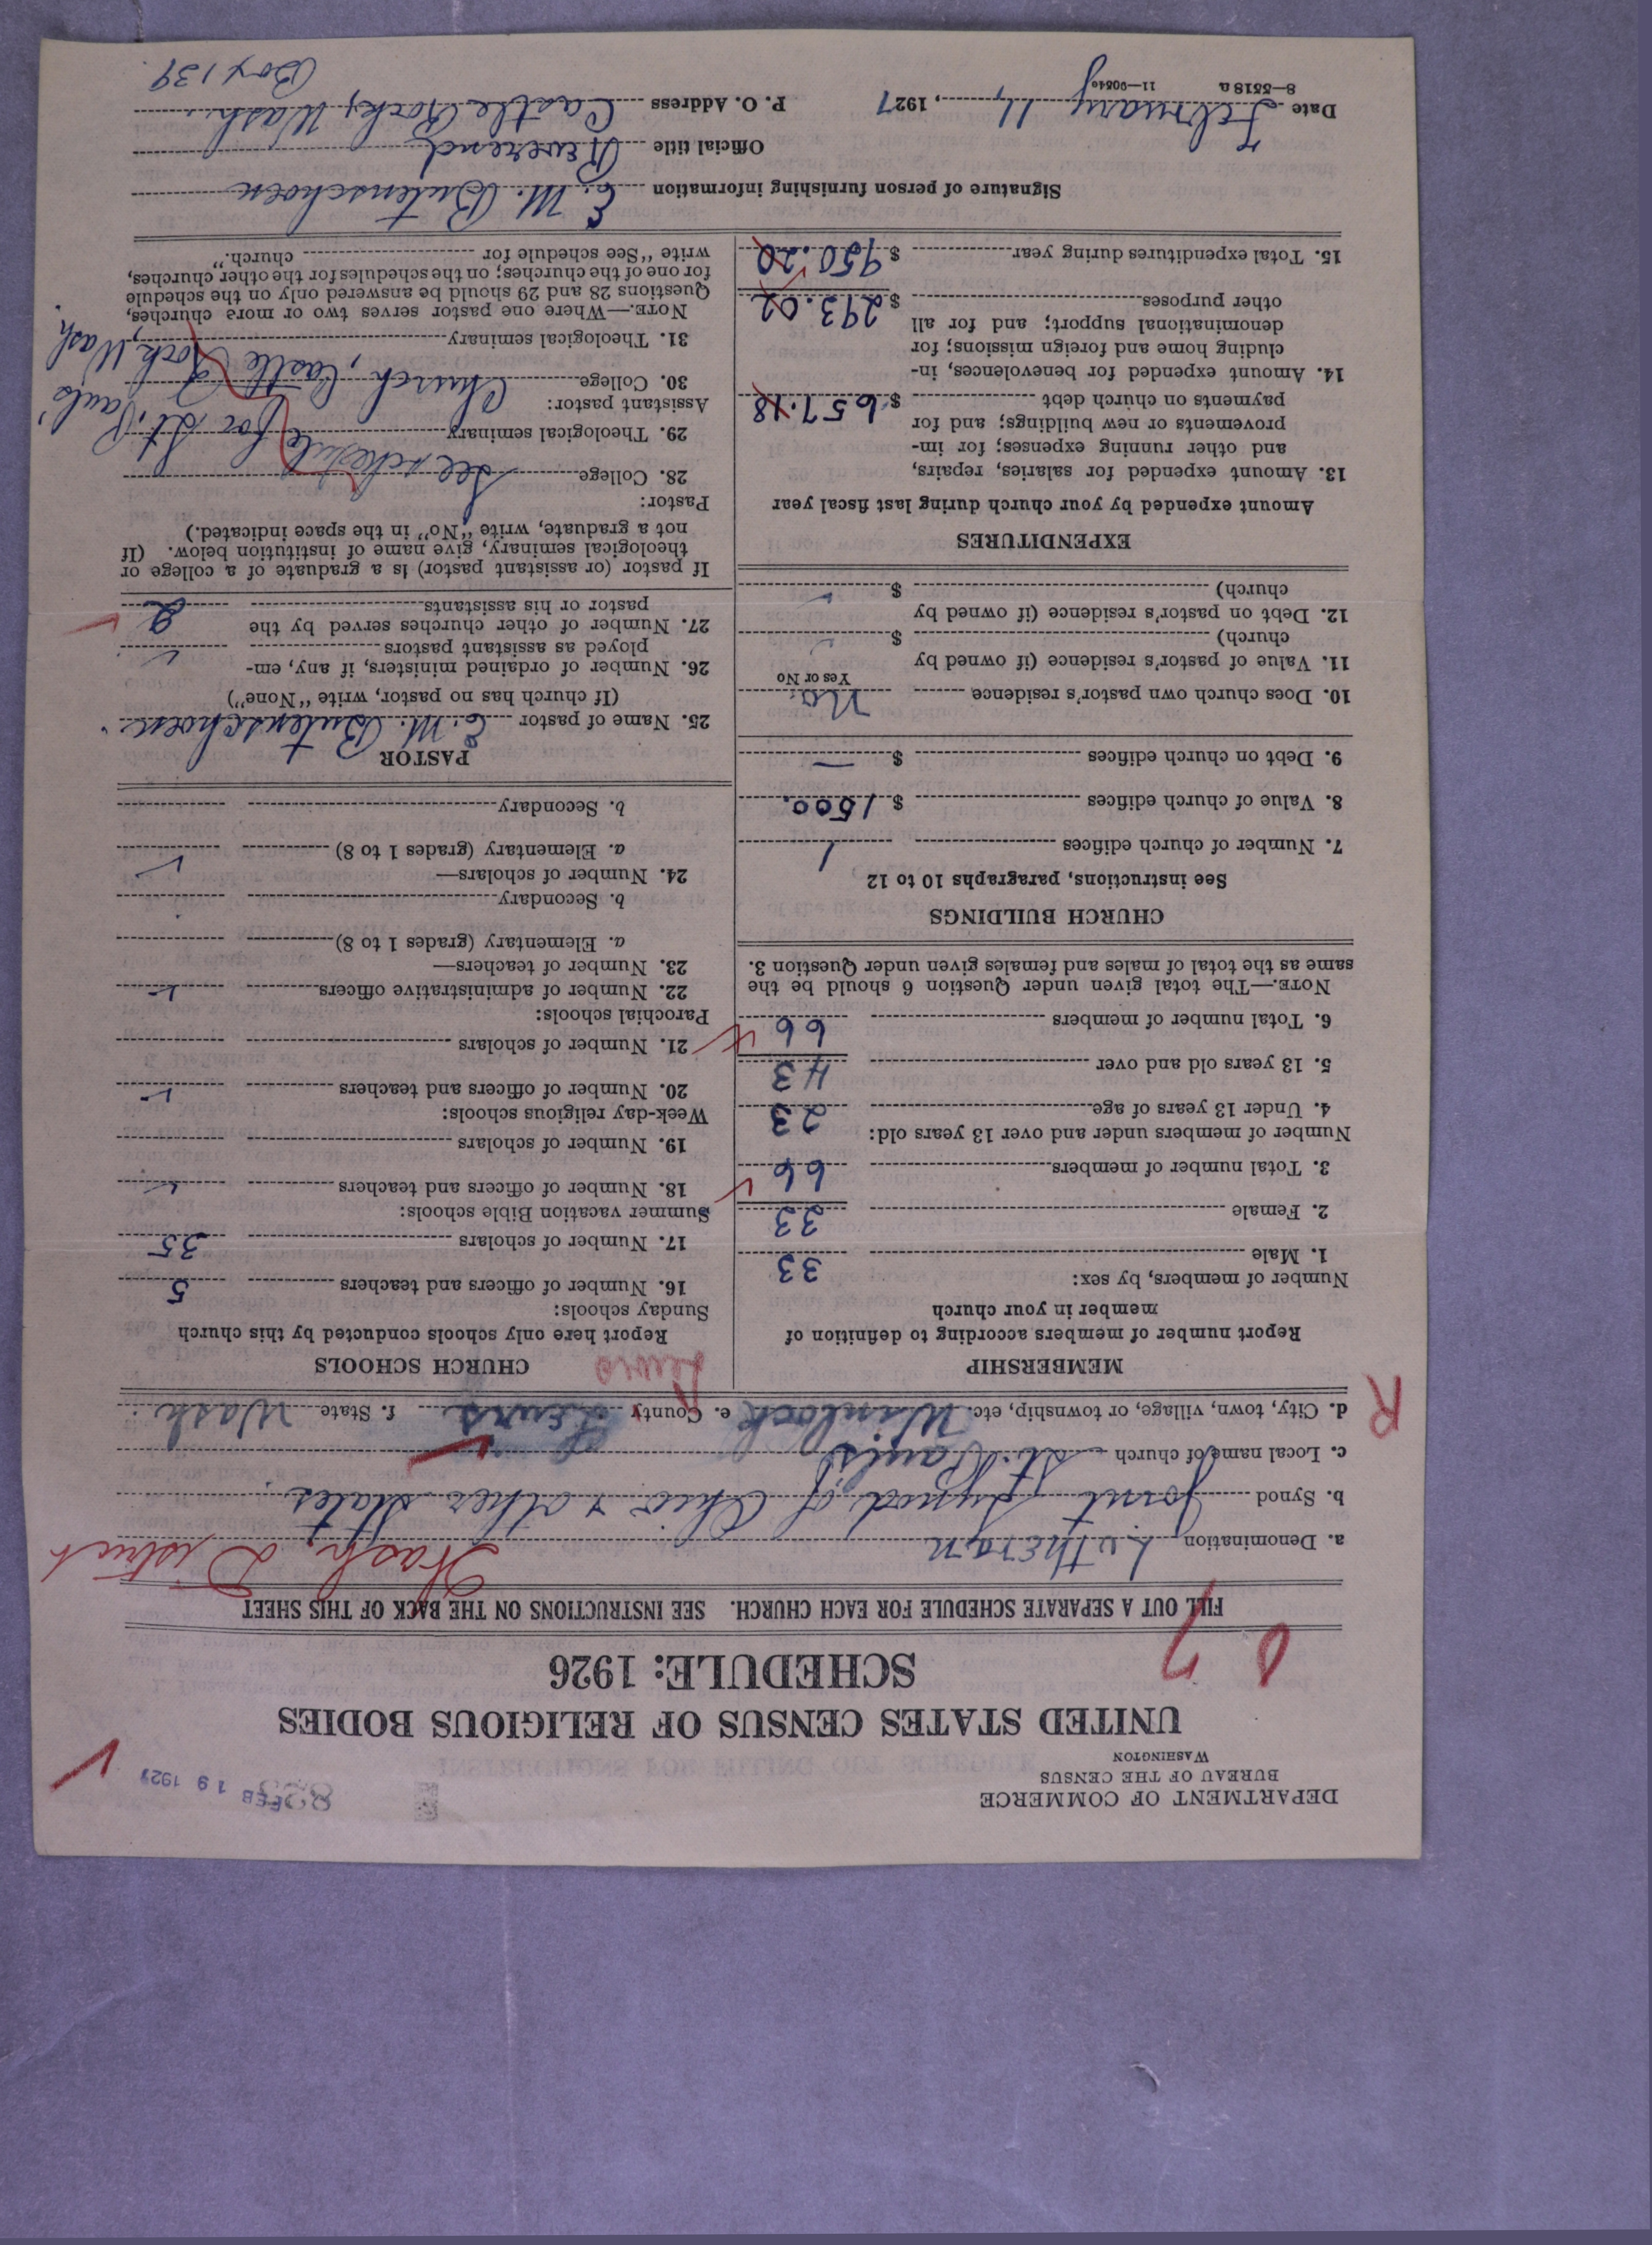 DEPARTMENT OF COMMERCE
BUREAU OF THE CENSUS
WASHINGTON
FEB 19 1927
UNITED STATES CENSUS OF RELIGIOUS BODIES
SCHEDULE: 1926
FILL OUT A SEPARATE SCHEDULE FOR EACH CHURCH. SEE INSTRUCTIONS ON THE BACK OF THIS SHEET
Wash. District
a. Denomination Lutheran
b. Synod Joint Synod of Ohio & other States
c. Local name of church St. Paul's
d. City, town, village, or township, etc. Winlock e. County Lewis f. State Wash.
R
Lewis
MEMBERSHIP
Report number of members according to definition of
member in your church
Number of members, by sex:
1. Male 33
2. Female 33
3. Total number of members 66
Number of members under and over 13 years old:
4. Under 13 years of age 23
5. 13 years old and over 43
6. Total number of members 66
NOTE.—The total given under Question 6 should be the
same as the total of males and females given under Question 3.
CHURCH BUILDINGS
See instructions, paragraphs 10 to 12
7. Number of church edifices 1
8. Value of church edifices $ 1500.
9. Debt on church edifices $ —
10. Does church own pastor's residence No.
Yes or No
11. Value of pastor's residence (if owned by
church) $
12. Debt on pastor's residence (if owned by
church) $
EXPENDITURES
Amount expended by your church during last fiscal year
13. Amount expended for salaries, repairs,
and other running expenses; for im-
provements or new buildings; and for
payments on church debt $ 657.18
14. Amount expended for benevolences, in-
cluding home and foreign missions; for
denominational support; and for all
other purposes $ 293.02
15. Total expenditures during year $ 950.20
CHURCH SCHOOLS
Report here only schools conducted by this church
Sunday schools:
16. Number of officers and teachers 5
17. Number of scholars 35
Summer vacation Bible schools:
18. Number of officers and teachers
19. Number of scholars
Week-day religious schools:
20. Number of officers and teachers
21. Number of scholars
Parochial schools:
22. Number of administrative officers
23. Number of teachers—
a. Elementary (grades 1 to 8)
b. Secondary
24. Number of scholars—
a. Elementary (grades 1 to 8)
b. Secondary
PASTOR
25. Name of pastor E. M. Butenschoen
(If church has no pastor, write "None")
26. Number of ordained ministers, if any, em-
ployed as assistant pastors
27. Number of other churches served by the
pastor or his assistants 2
If pastor (or assistant pastor) is a graduate of a college or
theological seminary, give name of institution below. (If
not a graduate, write "No" in the space indicated.)
Pastor:
28. College See schedule
29. Theological seminary for St. Paul's
Assistant pastor:
30. College Church, Castle Rock Wash.
31. Theological seminary
NOTE.—Where one pastor serves two or more churches,
Questions 28 and 29 should be answered only on the schedule
for one of the churches; on the schedules for the other churches,
write "See schedule for church."
Signature of person furnishing information E. M. Butenschoen
Official title Reverend
Date February 11, 1927 P. O. Address Castle Rock, Wash.
8—5518 a
Box 139